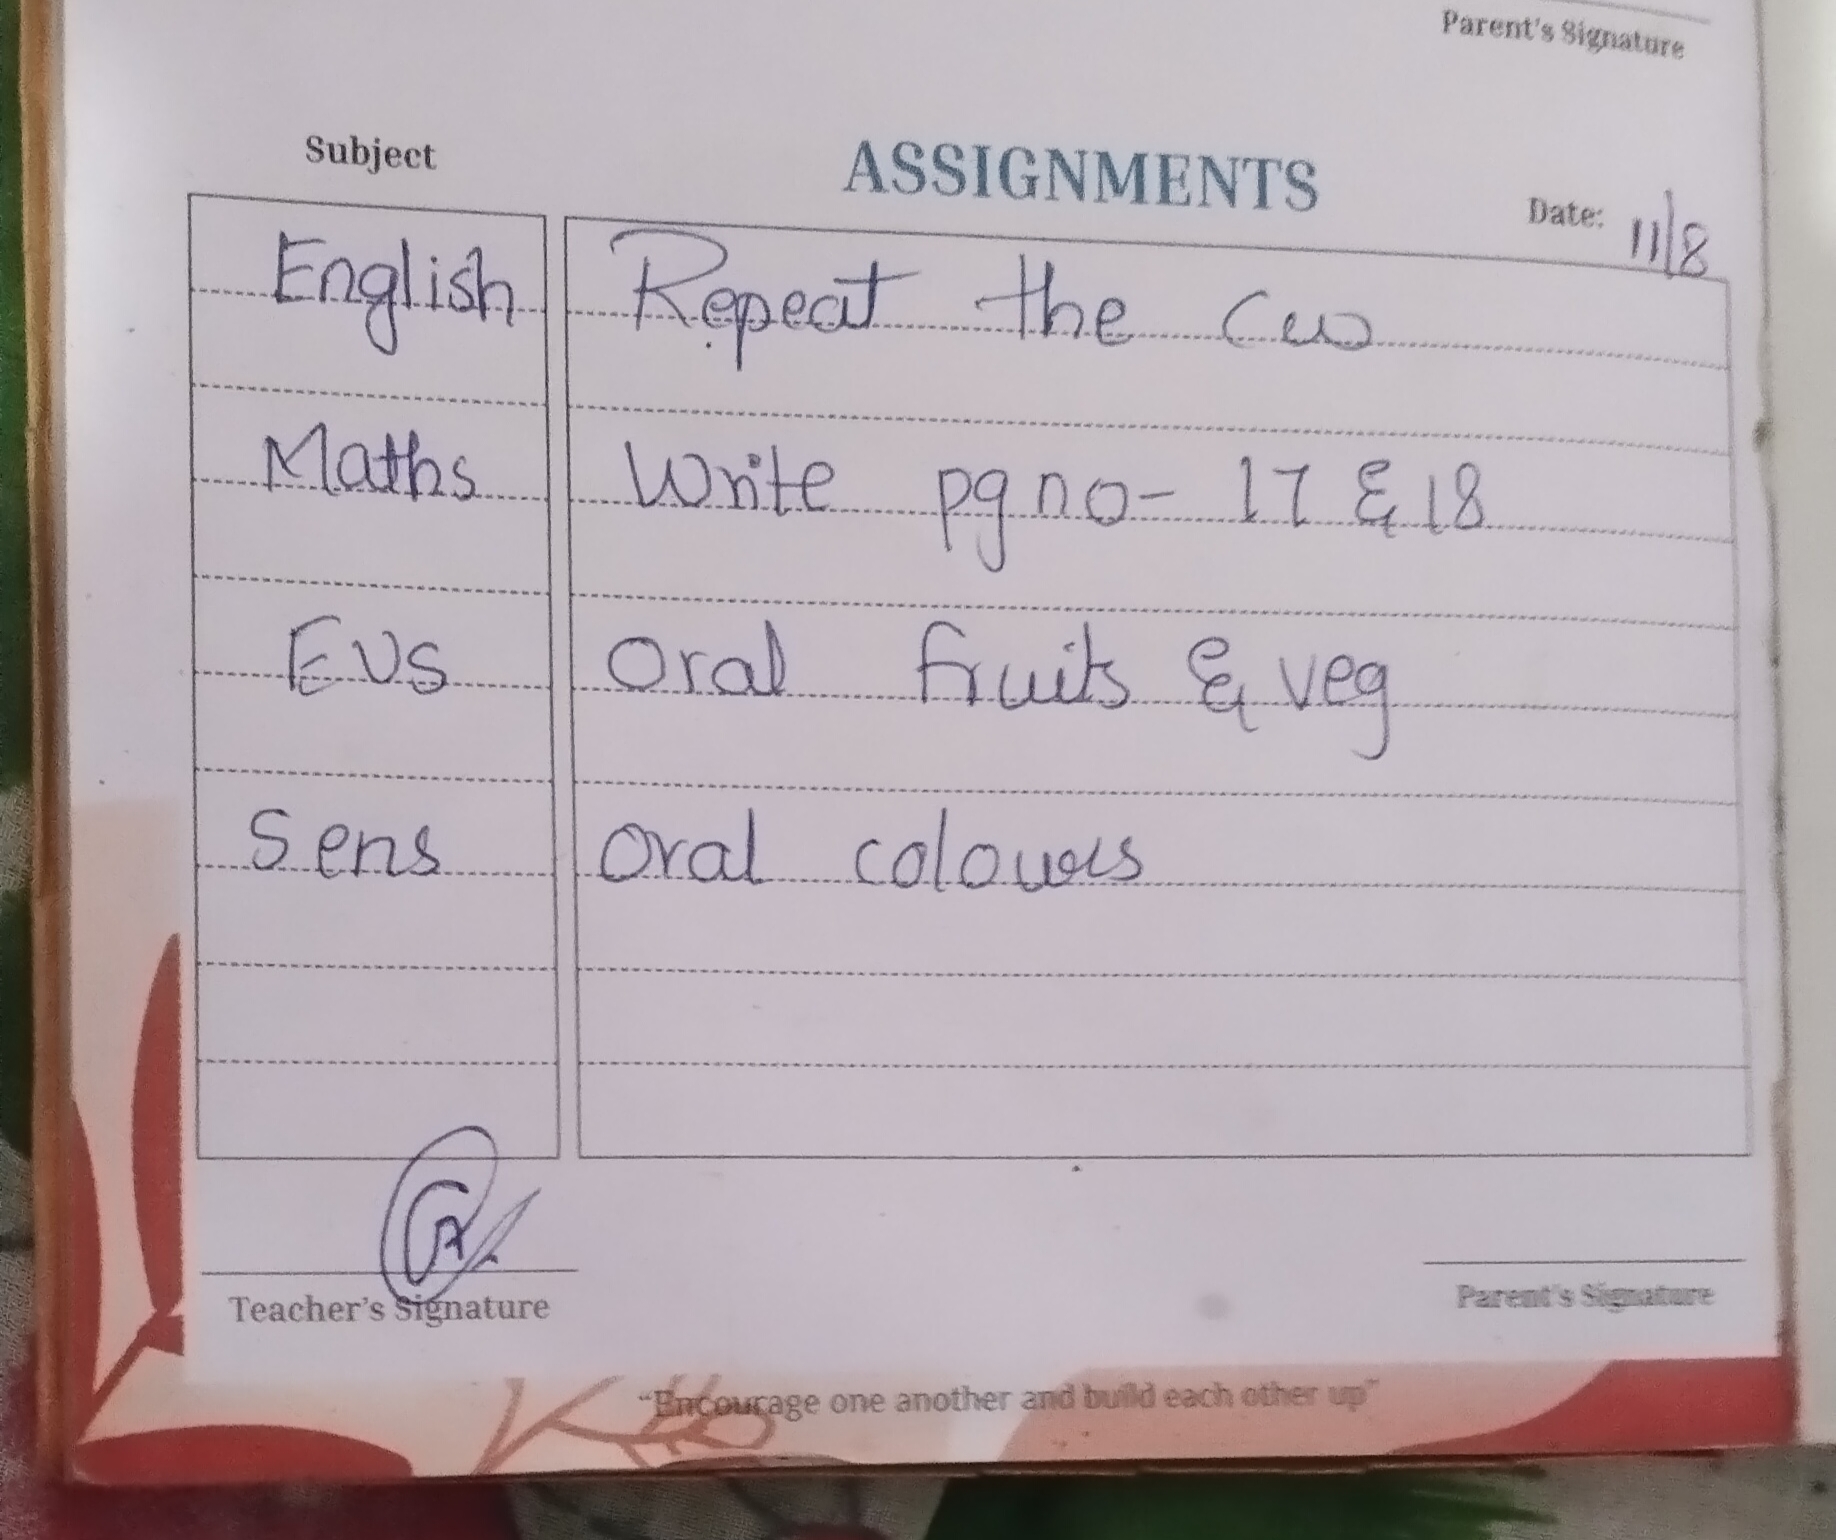 Parent's Signature
Subject
ASSIGNMENTS
Date: 11/8
English Repeat the cw
Maths Write pg no- 17 & 18
EVS Oral fruits & veg
Sens Oral colours
Teacher's Signature
Parent's Signature
"Encourage one another and build each other up"